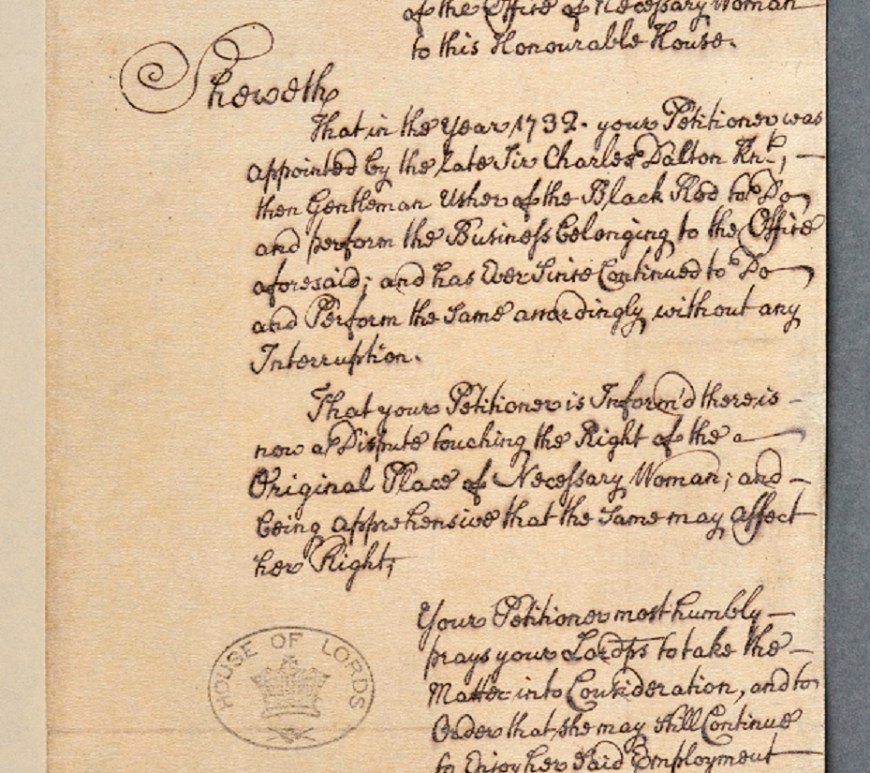 of the Office of Necessary Woman
to this Honourable House.
Sheweth
That in the Year 1732. your Petitioner was
appointed by the late Sir Charles Dalton Knt., —
then Gentleman Usher of the Black Rod to Do
and perform the Business belonging to the Office
aforesaid; and has Ever Since Continued to Do —
and Perform the Same accordingly without any
Interruption.
That your Petitioner is Inform'd there is –
now a Dispute touching the Right of the a —
Original Place of Necessary Woman; and –
being apprehensive that the Same may affect
her Right;
Your Petitioner most humbly —
prays your Lordps to take the —
Matter into Consideration, and to
Order that she may still Continue
to Enjoy her Said Employment
HOUSE OF LORDS